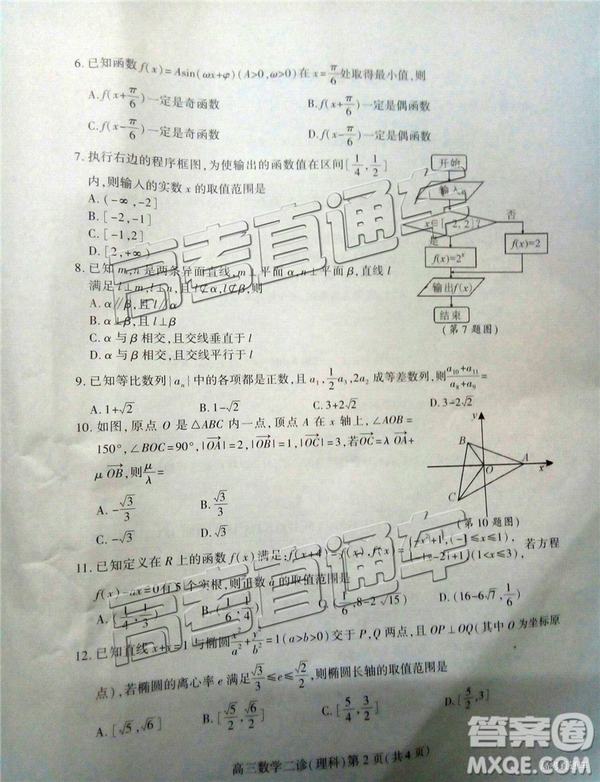 6.已知函数f(x)=Asin(ωx+φ)(A>0,ω>0)在x=π/6处取得最小值,则
A.f(x+π/6)一定是奇函数 B.f(x+π/6)一定是偶函数
C.f(x-π/6)一定是奇函数 D.f(x-π/6)一定是偶函数
7.执行右边的程序框图,为使输出的函数值在区间[1/4,1/2]
内,则输入的实数x的取值范围是
A.(-∞,-2]
B.[-2,-1]
C.[-1,2]
D.[2,+∞)
开始
输入
x∈[-2,2]?
是
否
f(x)=2^x
f(x)=2
输出f(x)
结束
(第7题图)
8.已知m,n是两条异面直线,m⊥平面α,n⊥平面β,直线l
满足l⊥m,l⊥n,且l⊄α,l⊄β,则
A.α∥β,且l∥α
B.α⊥β,且l⊥β
C.α与β相交,且交线垂直于l
D.α与β相交,且交线平行于l
9.已知等比数列{aₙ}中的各项都是正数,且a₁,1/2a₃,2a₂成等差数列,则(a₁₀+a₁₁)/(a₈+a₉)=
A.1+√2 B.1-√2 C.3+2√2 D.3-2√2
10.如图,原点O是△ABC内一点,顶点A在x轴上,∠AOB=
150°,∠BOC=90°,|OA|=2,|OB|=1,|OC|=3,若OC=λOA+
μOB,则μ/λ=
A.-√3/3 B.√3/3
C.-√3 D.√3
y
B
O
A
x
C
(第10题图)
11.已知定义在R上的函数f(x)满足:f(x+4)=f(x),f(x)={-x²+1,(-1≤x≤1), -|x-2|+1(1<x≤3), 若方程
f(x)-ax=0有5个实根,则正数a的取值范围是
A.(1/4,1/3) B.(1/6,1/4) C.(1/6,8-2√15) D.(16-6√7,1/6)
12.已知直线x+y=1与椭圆x²/a²+y²/b²=1(a>b>0)交于P,Q两点,且OP⊥OQ(其中O为坐标原
点),若椭圆的离心率e满足√3/3≤e≤√2/2,则椭圆长轴的取值范围是
A.[√5,√6] B.[√5/2,√6/2] C.[5/4,3/2] D.[5/2,3]
高三数学二诊(理科)第2页(共4页)
高考直通车
高考直通车
答案卷
MXQE.COM